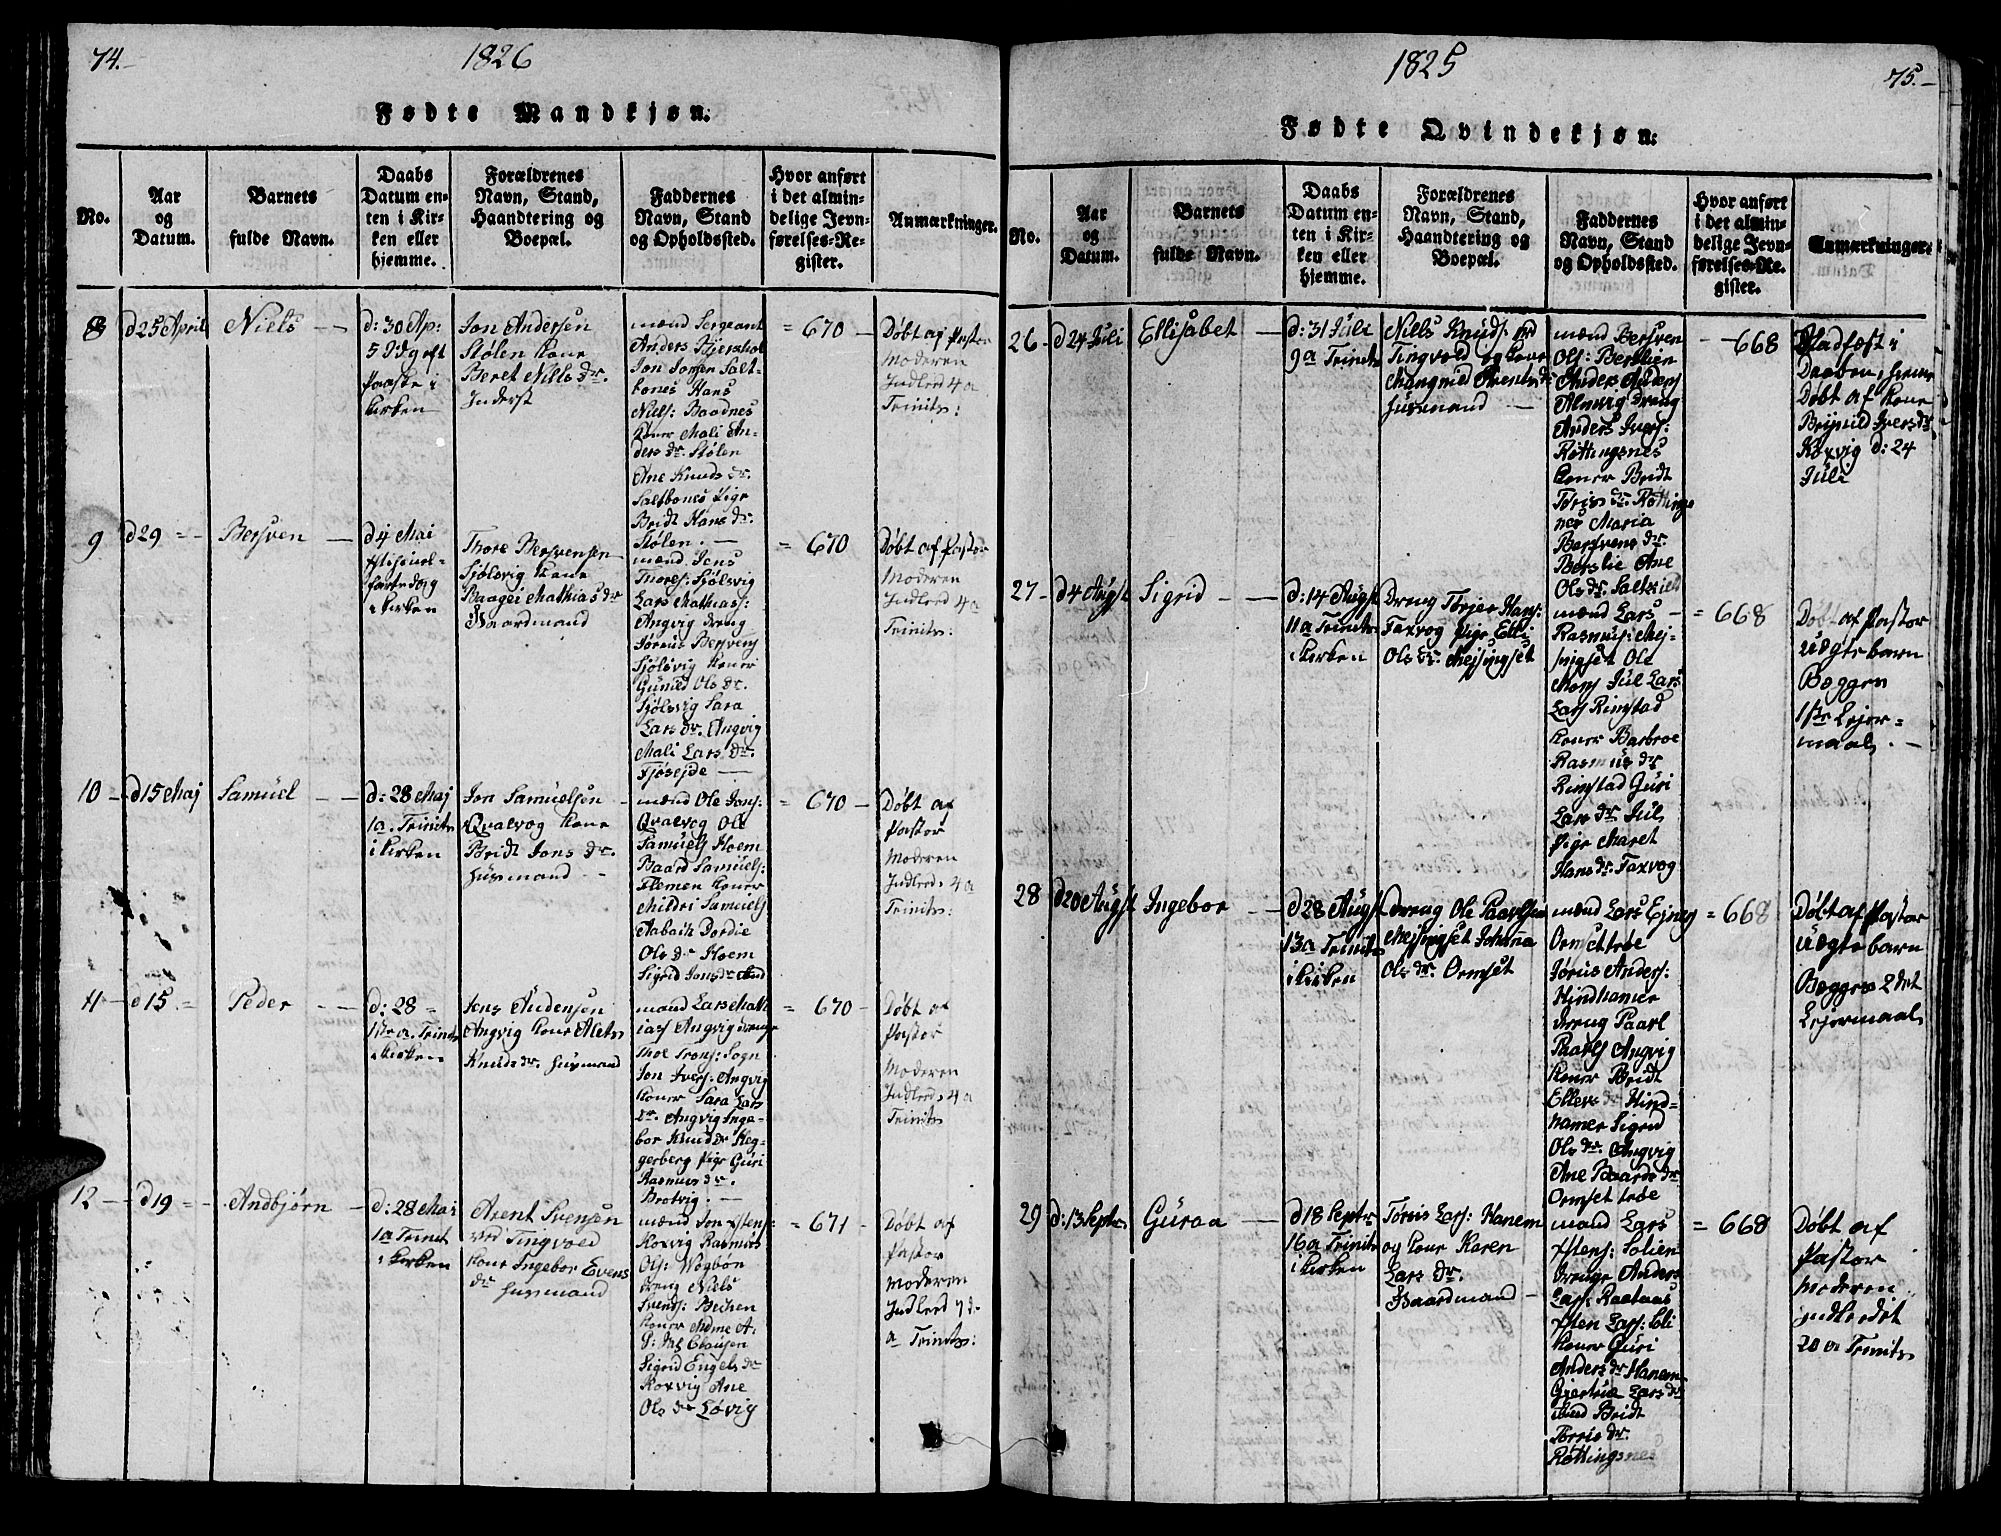 74.
1826
Fødte Mandkjøn.
No.
Aar
og
Datum.
Barnets
fulde Navn.
Daabs
Datum en-
ten i Kir-
ken eller
hjemme.
Forældrenes
Navn, Stand,
Haandtering og
Boepæl.
Faddernes
Navn, Stand
og Opholdssted.
Hvor anført
i det almin-
delige Jevn-
førelses-Re-
gister.
Anmærkninger.
8
d 25 April
Niels
d: 30 Ap:
Paaske i
Kirken
Jon Andersen
Stølen Kone
Beret Nills dr.
Inderst
mænd Sergeant
Anders
Jon Jonsen Salt-
bones Hans
Niels: Baadnes
Koner Mali An-
ders dr. Stølen
Ane Knuds dr.
Saltbones Pige
Bridt Hans dr.
Stølen. —
= 670 —
Døbt af Pastor
Moderen
Indled. 4 a
Trinits:
9
d 29 =
Bersven
d 4 Mai
i Kirken
Thore Bersvensen
Sjølsvig Kone
Baagei Mathias dr
Gaardmand
mænd Jens
Thores: Sjølsvig
Lars Mathias:
Angvig dreng
Jørius Bersvens
Sjølsvig Koner
Guned Ols dr.
Sjølsvig Sara
Lars dr. Angvig
Mali Lars dr.
Fjøseide —
= 670
Døbt af Pastor
Moderen
Indled. 4 a
Trinits:
10 —
d 15 Maj
Samuel
d: 28 Maj
1 a. Trinits
i Kirken
Jon Samuelsen
Qvalvog Kone
Bridt Jons dr.
Husmand
mænd Ole Jons:
Qvalvog Ole
Samuels Hoem
Baard Samuels:
Flemen Koner
Mildri Samuels
Aabach Dordie
Ols dr Hoem
Sigrid Jons dr
= 670 —
Døbt af
Pastor
Moderen
Indled. 4 a
Trinits:
11 —
d 15. =
Peder
d: 28 =
1ste a. Trinits
i Kirken
Jens Andersen
Angvig Kone Alets
Knuds dr. Husmand
mænd Lars Math
ias Angvig drenge
Thoe Trons: Sogn
Jon Ivers: Angvig
Koner Sara Lars
dr. Angvig Inge-
bor Knuds dr Heg-
gerberg Pige Guri
Rasmus dr.
Brotvig. —
= 670 —
Døbt af
Pastor
Moderen
Indled. 4 a
Trinits
12 —
d 19 =
Andbjørn
d: 28 Mai
1 a Trinit
i Kirken
Arent Svensen
ved Tingvold
Kone Ingebor Evens
dr Husmand
mænd Jon Østens:
Koxvig Rasmus
Ols: Wogbøe
dreng Niels
Svends:
Koner
Sigrid Engels dr
Koxvig Ane
Ols dr Løvig
= 671 —
Døbt af
Pastor
Moderen
Indled 7 de
a Trinits:
1825
75.
Fødte Qvindekjøn:
No.
Aar
og
Datum.
Barnets
fulde Navn.
Daabs
Datum en-
ten i Kir-
ken eller
hjemme.
Forældrenes
Navn, Stand,
Haandtering og
Boepæl.
Faddernes
Navn, Stand
og Opholdssted.
Hvor anført
i det almin-
delige Jevn-
førelses-Re-
gister.
Anmærkninger.
26 —
d 24 Juli
Ellisabet
d: 31 Juli
9 a Trinits
Niels Knuds:
Tingvold og Kone
Mangnild Arents dr
Husmand —
mænd Bersven
Ols: Berslien
Anders Anders
Almvig Dreng
Anders Ivers:
Røttingsnes
Koner Bridt
Tøris dr. Røttings
nes Maria
Bersvens dr.
Berslie Ane
Ols dr. Saltkield
— 668
Stadfæst i
Daaben, hieme
Døbt af Kone
Brynild Ivers dr
Koxvig d: 24
Juli
27 —
d 4 Augst
Sigrid
d: 14 Augst
11 a Trinits
i Kirken
Dreng Torjer Hans:
Taxvog Pige Elli
Ols dr. Mejsingset
mænd Lars —
Rasmus: Mej-
singset Ole
Mons Jul Lars
Lars Rimstad
Koner Barbroe
Rasmus dr
Rimstad Guri
Lars dr Jul,
Pige Maret
Hans dr. Taxvog
= 668
Døbt af Pastor
Uægte barn
Begges
1ste Lejer=
maal. —
28
d 20 Augst
Ingebor
d 28 Augst
13 a Trinits
i Kirken
Dreng Ole Paarlsen
Mejsingset Johana
Ols dr. Ormset
mænd Lars Ejnes
Ormsettrøe
Jørius Anders:
Hindhamer
dreng Paarl
Paarls Angvig
Koner Bridt
Ellevs dr Hind-
hamer Sigrid
Ols dr. Angvig
Ane Baards dr
Ormset trøe
= 668
Døbt af Pastor
Uægte barn
Begges 2det
Lejermaal
29
d: 13 Septr
Guroa
d 18 Septr
16 a Trinits
i Kirken
Tørius Lars: Hanem
og Kone Karen
Lars dr.
Gaardmand —
mænd Lars
Østens: Solien
Drenge Anders
Lars: Raataas
Østen Lars: Soli
Koner Guri
Anders dr Hanem
Giertrue Lars dr
Bridt
Torris dr.
Røttingsnes
= 668
Døbt af
Pastor
Moderen
indledet
20 a Trinits